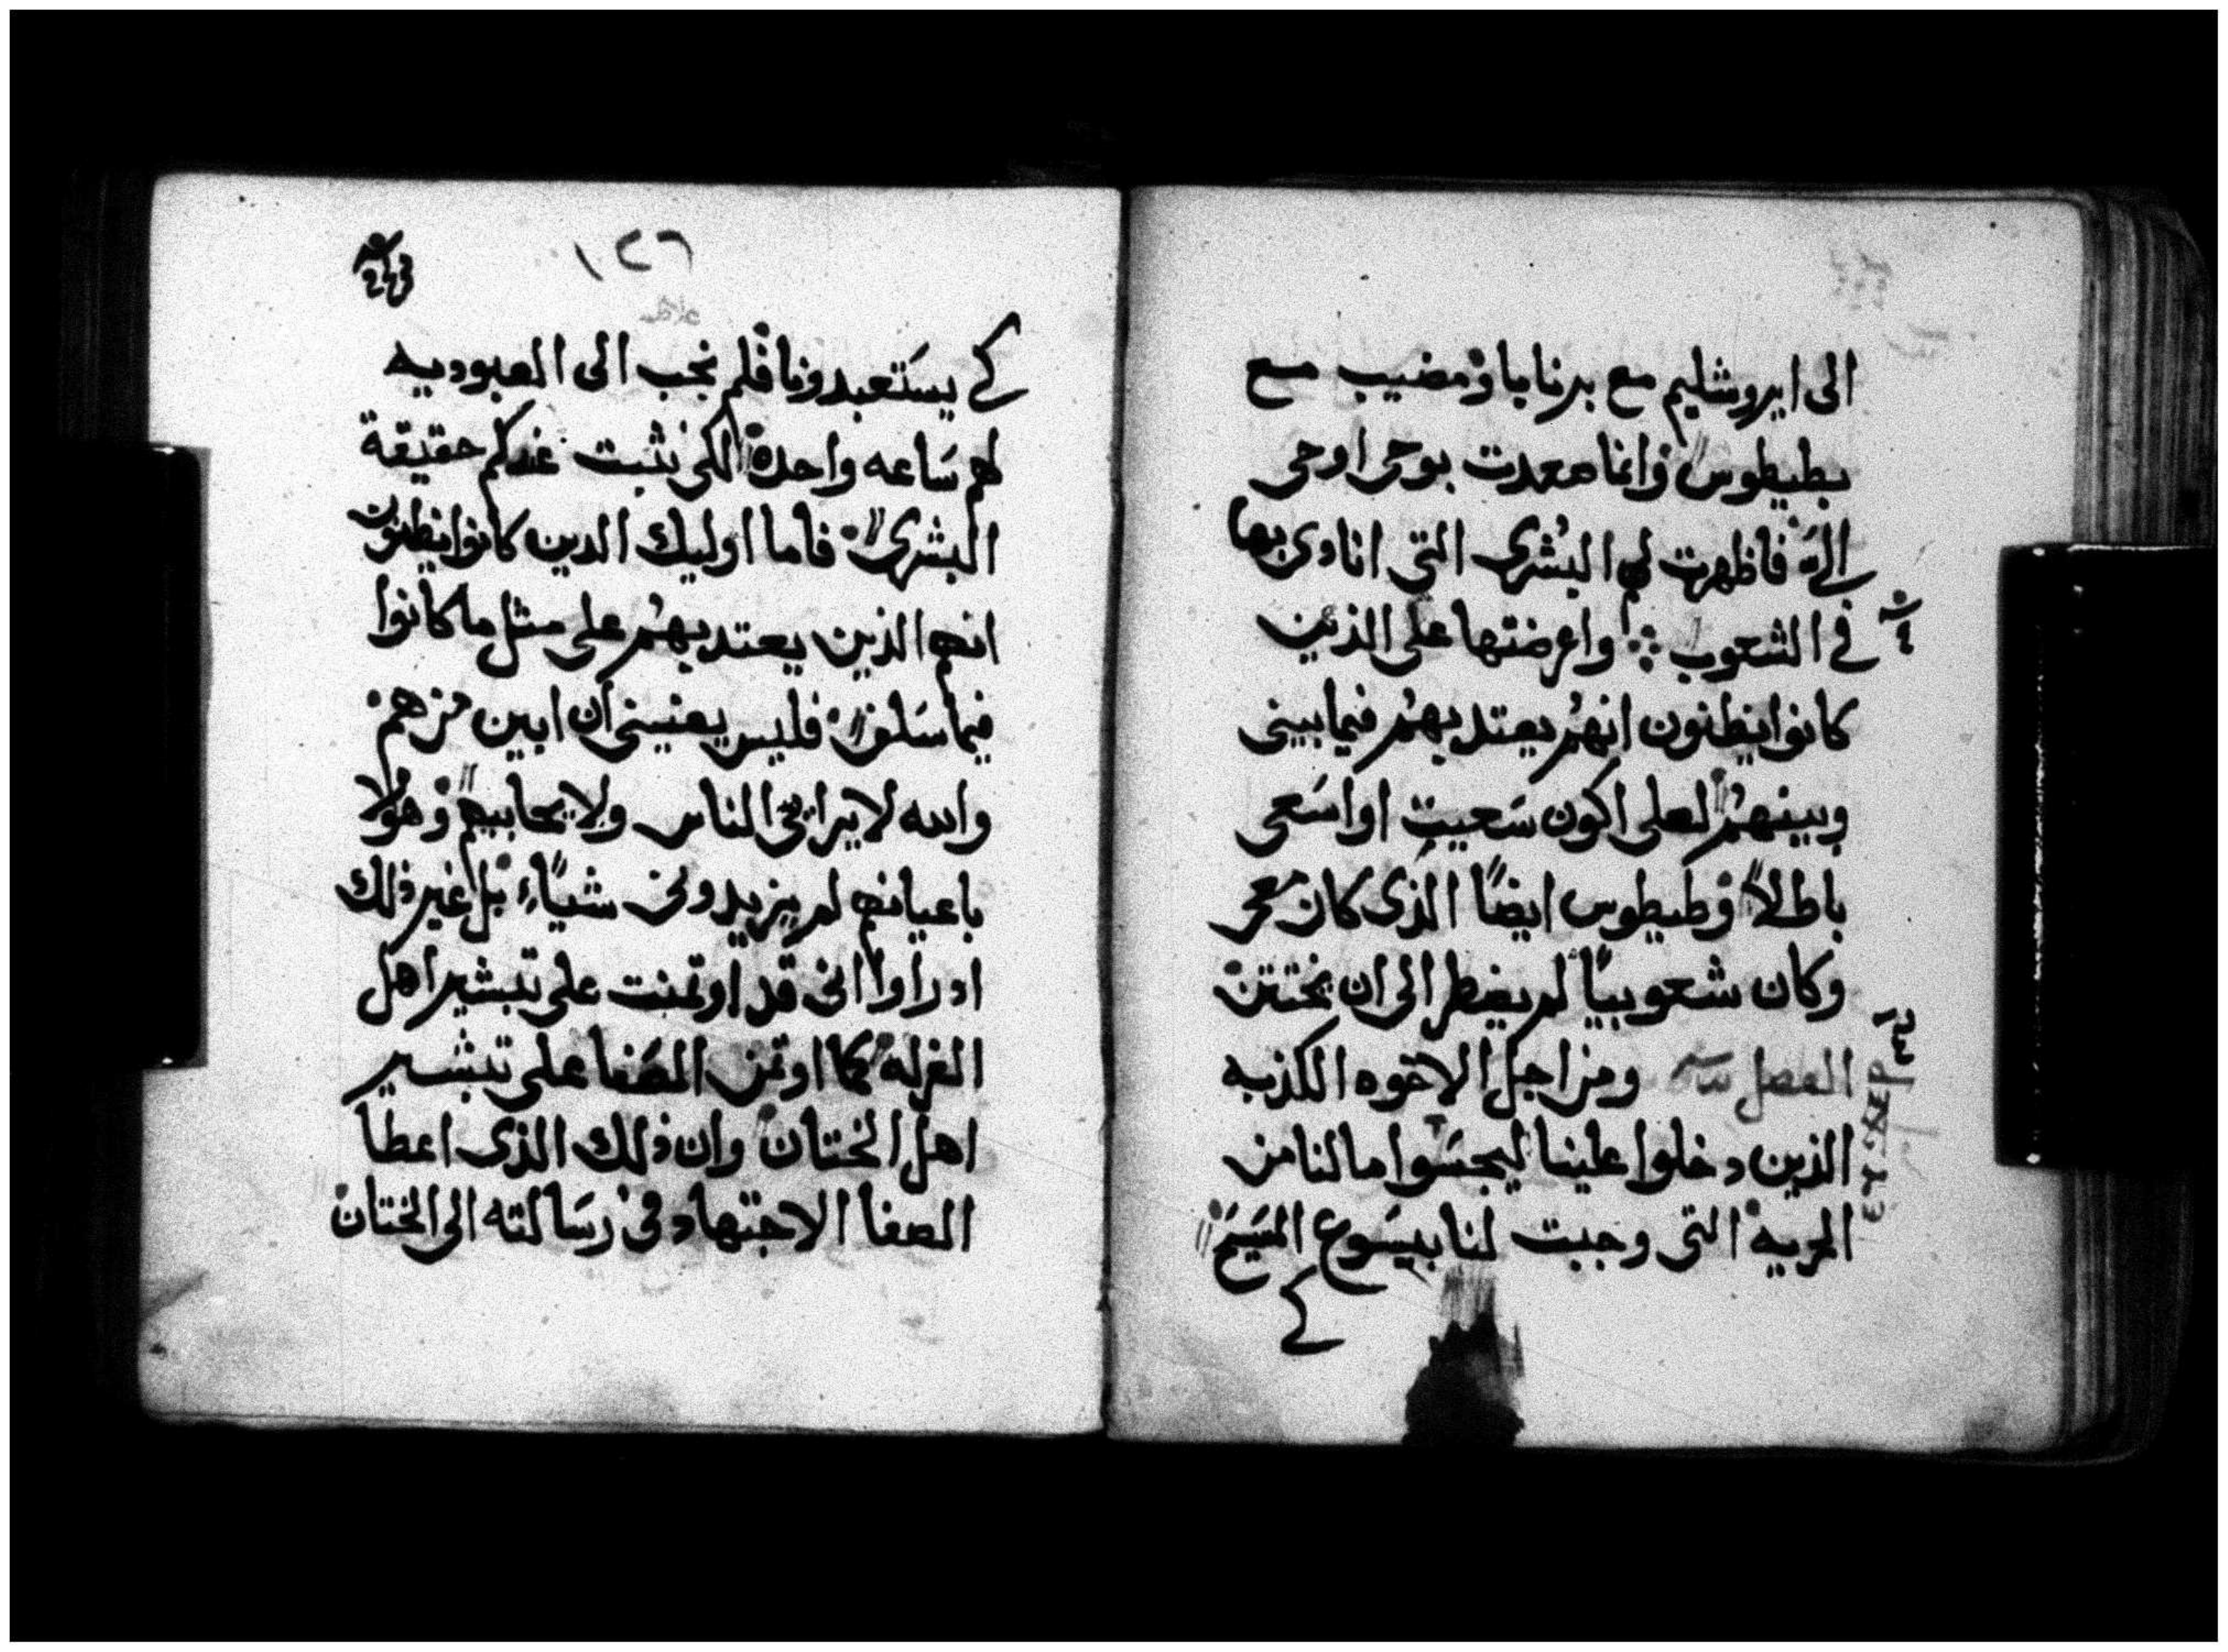 الى ايروشليم مع برنابا ومضيت مع
بطيطوس وانما صعدت بوحى اوحى
الىّ فاظهرت لهم البُشرى التى انادى بها
فى الشعوب واعرضتها على الذين
كانوا يظنون انهُم يعتد بهُم فيما بينى
وبينهُم لعلى اكون سَعيت او اسَعى
باطلاً وطيطوس ايضًا الذى كان معى
وكان شعوبيًا لم يضطر الى ان يختتن
الفصل ومن اجل الاخوه الكذبه
الذين دخلوا علينا ليجسَوا ما لنا من
الحريه التى وجبت لنا بيسَوع المسَيح
كى
١٢٦
كى يسَتعبدونا فلم نجب الى العبوديه
لهم سَاعه واحدة لكى يثبت عندكم حقيقة
البشرى فاما اوليك الدين كانوا يظنون
انهم الذين يعتد بهُم على مثل ما كانوا
فيما سَلف فليس يعنينى ان ابين من هم
والله لا يرايى الناس ولا يحابيهم وهولا
باعيانهم لم يزيدونى شياًء بل غير ذلك
اد راوا انى قد اوتمنت على تبشير اهل
الغرله كما اوتمن الصَفا على تبشير
اهل الختان وان ذلك الذى اعطا
الصفا الاجتهاد فى رسَالته الى الختان